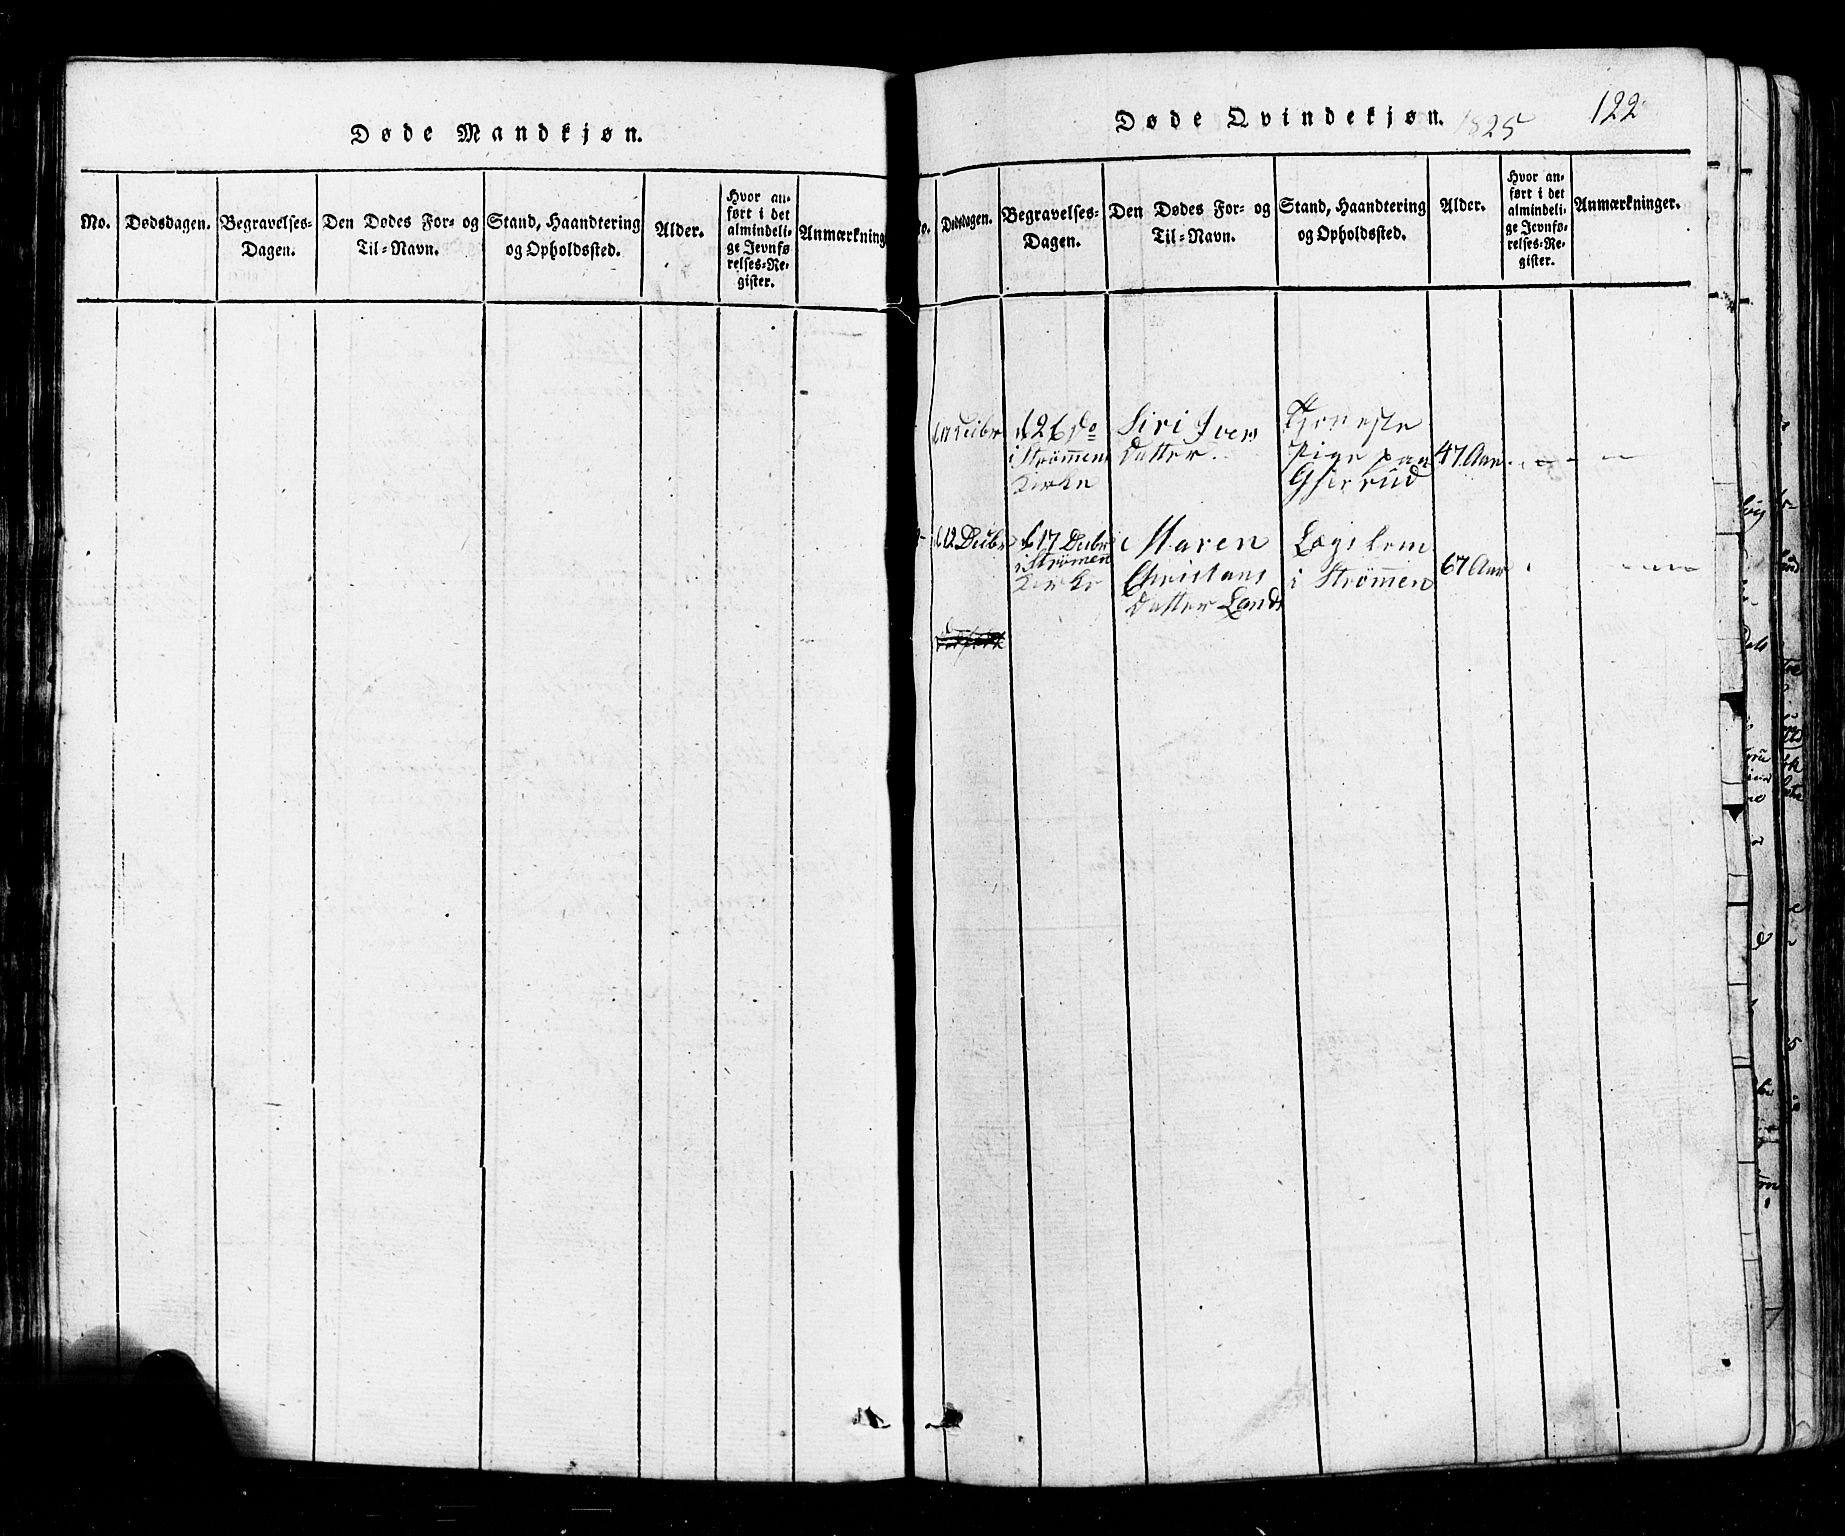 Døde Mandkjøn.
No.
Dødsdagen.
Begravelses-
Dagen.
Den Dødes For- og
Til-Navn.
Stand, Haandtering
og Opholdssted.
Alder.
Hvor an-
ført i det
almindeli-
ge Jevnfø-
relses-Re-
gister.
Anmærkning
Døde Qvindekjøn.
1825
122
No.
Dødsdagen.
Begravelses-
Dagen.
Den Dødes For- og
Til-Navn.
Stand, Haandtering
og Opholdssted.
Alder.
Hvor an-
ført i det
almindeli-
ge Jevnfø-
relses-Re-
gister.
Anmærkninger.
d. 26 do
i Strømens
Kirke
Siri Ivers
Datter
Tjeneste
Pige paa
47. Aar
d. 12 Decbr
d. 17 Decbr
i Strømen
Kirke
Maren
Christans
Datter Lands
Lægslem
i Strømen
67 Aar